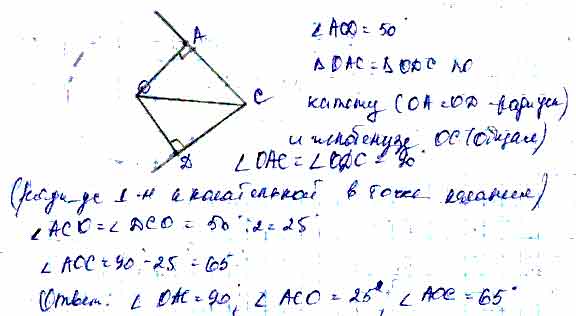 ∠AOD = 50°
A
△OAC = △ODC по
O
катету (OA = OD - радиусы)
C
и гипотенузе OC (общая)
D
∠OAC = ∠ODC = 90°
(радиус ⊥-н к касательной в точке касания)
∠ACO = ∠DCO = 50 : 2 = 25°
∠AOC = 90 - 25 = 65
Ответ: ∠OAC = 90°, ∠ACO = 25°, ∠AOC = 65°